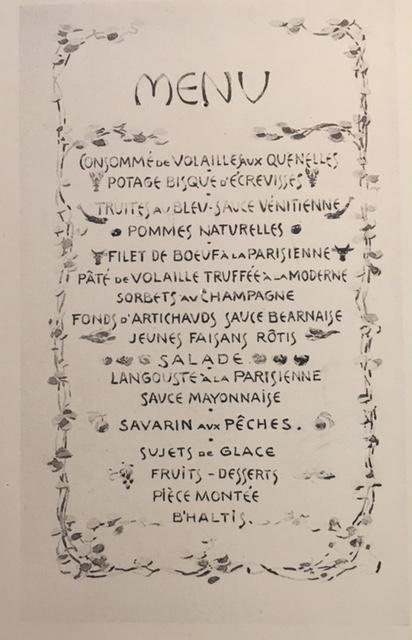 MENU
CONSOMMÉ DE VOLAILLES AUX QUENELLES
POTAGE BISQUE D'ECREVISSES
TRUITES AU BLEU-SAUCE VÉNITIENNE
POMMES NATURELLES
FILET DE BOEUF À LA PARISIENNE
PÂTÉ DE VOLAILLE TRUFFÉE À LA MODERNE
SORBETS AU CHAMPAGNE
FONDS D'ARTICHAUDS SAUCE BEARNAISE
JEUNES FAISANS RÔTIS
SALADE
LANGOUSTE À LA PARISIENNE
SAUCE MAYONNAISE
SAVARIN AUX PÊCHES.
SUJETS DE GLACE
FRUITS - DESSERTS
PIÈCE MONTÉE
B'HALTIS.